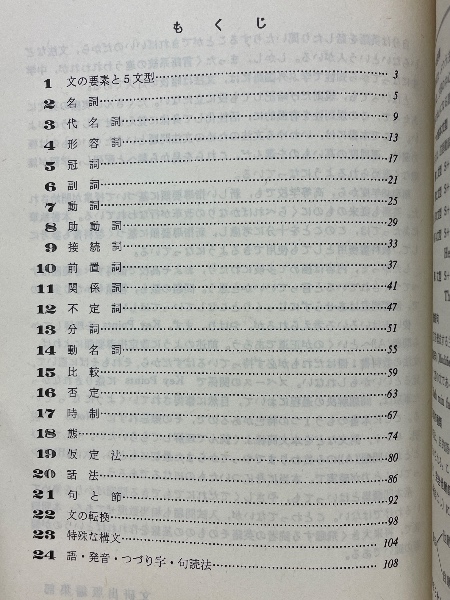 もくじ
1 文の要素と5文型 3
2 名詞 5
3 代名詞 9
4 形容詞 13
5 冠詞 17
6 副詞 21
7 動詞 25
8 助動詞 29
9 接続詞 33
10 前置詞 37
11 関係詞 41
12 不定詞 47
13 分詞 51
14 動名詞 55
15 比較 59
16 否定 63
17 時制 67
18 態 74
19 仮定法 80
20 話法 86
21 句と節 92
22 文の転換 98
23 特殊な構文 104
24 語・発音・つづり字・句読法 108